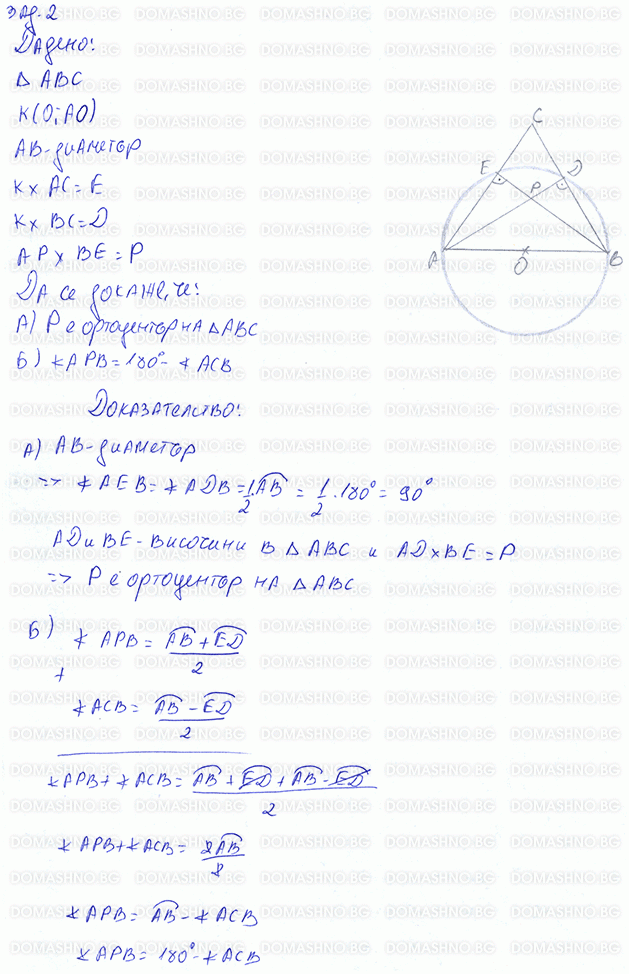 Зад. 2
Дадено:
△ ABC
K(O; AO)
AB-диаметър
K x AC = E
K x BC = D
AP x BE = P
Да се докаже, че:
А) P е ортоцентър на △ABC
Б) ∢APB = 180° - ∢ACB
C
E
D
P
A
O
B
Доказателство:
А) AB-диаметър
=> ∢AEB = ∢ADB = 1/2 . AB = 1/2 . 180° = 90°
AD и BE - височини в △ABC и AD x BE = P
=> P е ортоцентър на △ABC
Б) ∢APB = (AB + ED)/2
+
∢ACB = (AB - ED)/2
∢APB + ∢ACB = (AB + ED + AB - ED)/2
2
∢APB + ∢ACB = 2AB/2
∢APB = AB - ∢ACB
∢APB = 180° - ∢ACB
DOMASHNO.BG